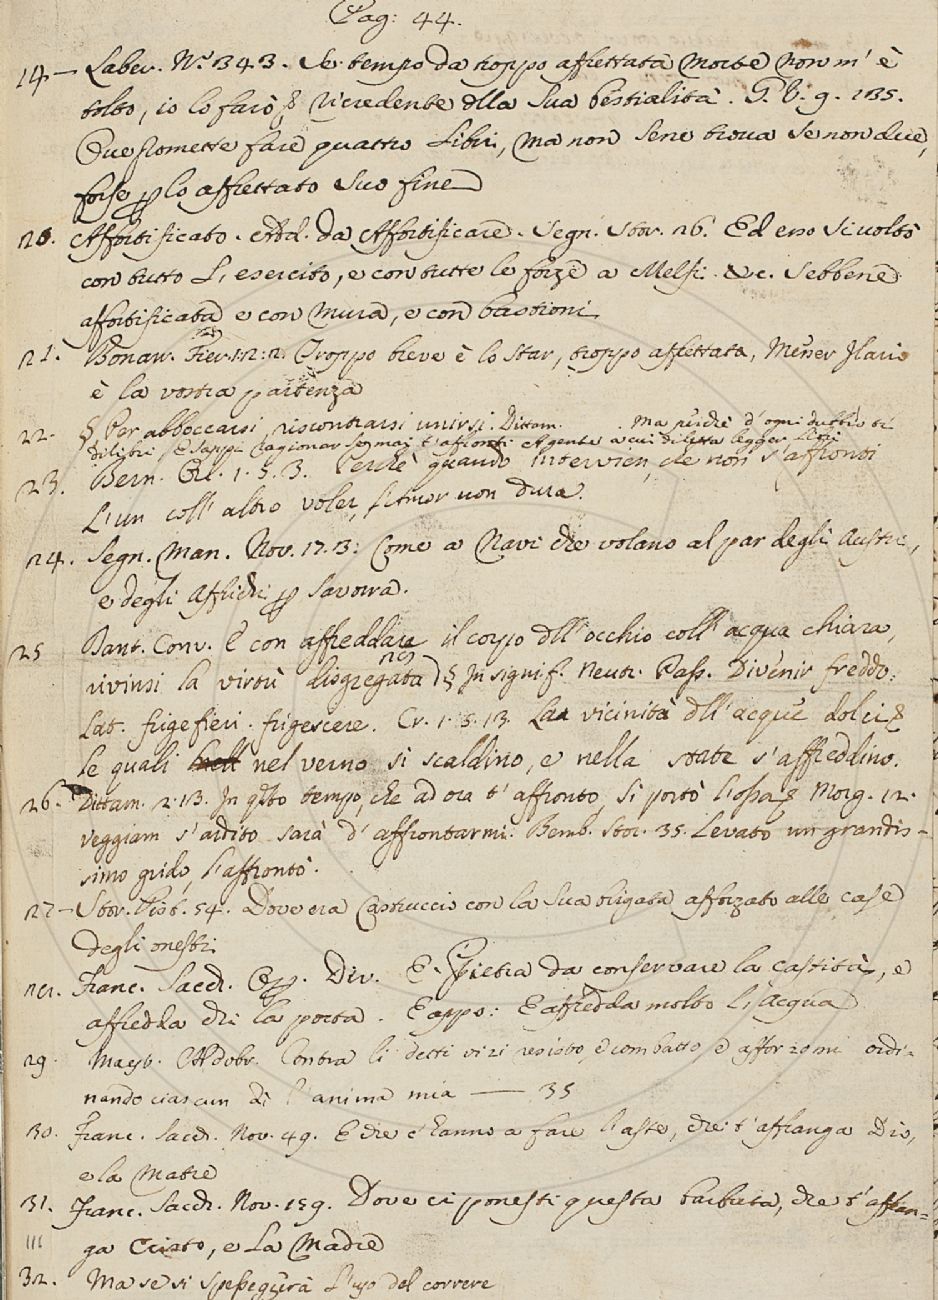 Pag: 44.
14 — Laber. N.º 343. Se tempo da troppo affrettata morte non m' è
tolto, io lo farò, § ricredente della sua bestialità. G. V. 9. 135.
Due promette fare quattro Libri, ma non sene trova se non due,
forse p lo affrettato suo fine
20. Affortificato. Add. da Affortificare. Segn. Stor. 26. Ed esso si voltò
con tutto L' esercito, e con tutte le forze a Melfi &c. Sebbene
affortificata e con mura, e con bastioni
21. Bonarr. Fier. 1:2:2. Troppo breve è lo star, troppo affrettata, Messer Ilario
è la vostra partenza
22. § Per abboccarsi, riscontrarsi unirsi. Dittam. Ma perchè d' ogni dubbio ti
dilibri, E sappi ragionar semmai t' affronti Agente a cui diletta legger Libri
23. Bern. Orl. 1. 5. 3. Perchè quando intervien, che non s' affronti
L'un coll' altro voler, l'Amor non dura.
24. Segn. Man. Nov. 17. 3: Come a Navi che volano al par degli Austri,
e degli Affrichi p Savorra.
25 Dant. Conv. E con affreddare il corpo dll' occhio coll' acqua chiara,
rivinsi la virtù disgregata § In signif. neutr. Pass. Divenir freddo:
Lat. frigefieri. frigescere. Cr. 1. 5. 13. La vicinità dll' acque dolci §
le quali nel verno si scaldino, e nella state s' affreddino.
26. Dittam. 2. 13. In qsto tempo, che ad ora t' affronto, Si portò l'ossa § Morg. 12.
veggiam s' ardito sarà d' affrontarmi. Bemb. Stor. 35. Levato un grandis-
simo grido, l'affrontò.
27 — Stor. Pist. 54. Dove era Castruccio con la sua brigata afforzato alle case
degli onesti
Franc. Sacch. Op. Div. E. Pietra da conservare la castità, e
affredda chi la porta. E appo: E affredda molto l'Acqua
29. Maestr. Aldobr. Contra li detti vizi resisto, e combatto, e afforzomi ordi-
nando ciascun dì l' anima mia — 35
30. Franc. Sacch. Nov. 49. E che c'hanno a fare l'aste, che t' affranga Dio,
e la Madre
31. Franc. Sacch. Nov. 159. Dove ci ponesti questa barbuta, che t' affran=
ga Cristo, e La Madre
32. Ma se si spesseggerà l'uso del correre